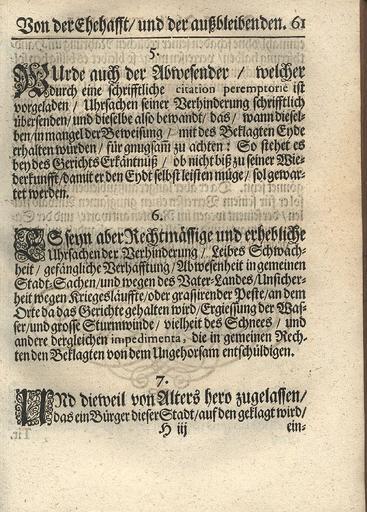 Von der Ehehafft/ und der außbleibenden. 61
5.
WUrde auch der Abwesender / welcher
durch eine schrifftliche citation peremptoriè ist
vorgeladen / Uhrsachen seiner Verhinderung schrifftlich
übersenden/ und dieselbe also bewandt/ das / wann diesel-
ben/ in mangel der Beweisung / mit des Beklagten Eyde
erhalten würden / für gnugsam zu achten: So stehet es
bey des Gerichts Erkäntnüß / ob nicht biß zu seiner Wie-
derkunfft/ damit er den Eydt selbst leisten müge/ sol gewar-
tet werden.
6.
ES seyn aber Rechtmässige und erhebliche
Uhrsachen der Verhinderung / Leibes Schwach-
heit / gefängliche Verhafftung/ Abwesenheit in gemeinen
Stadt-Sachen/ und wegen des Vater-Landes/ Unsicher-
heit wegen Kriegesläuffte/ oder grasirender Peste/ an dem
Orte da das Gerichte gehalten wird/ Ergiessung der Was-
ser/ und grosse Sturmwinde/ vielheit des Schnees / und
andere dergleichen impedimenta, die in gemeinen Rech-
ten den Beklagten von dem Ungehorsam entschüldigen.
7.
UNd dieweil von Alters hero zugelassen/
das ein Bürger dieser Stadt/ auf den geklagt wird/
H iij
ein-